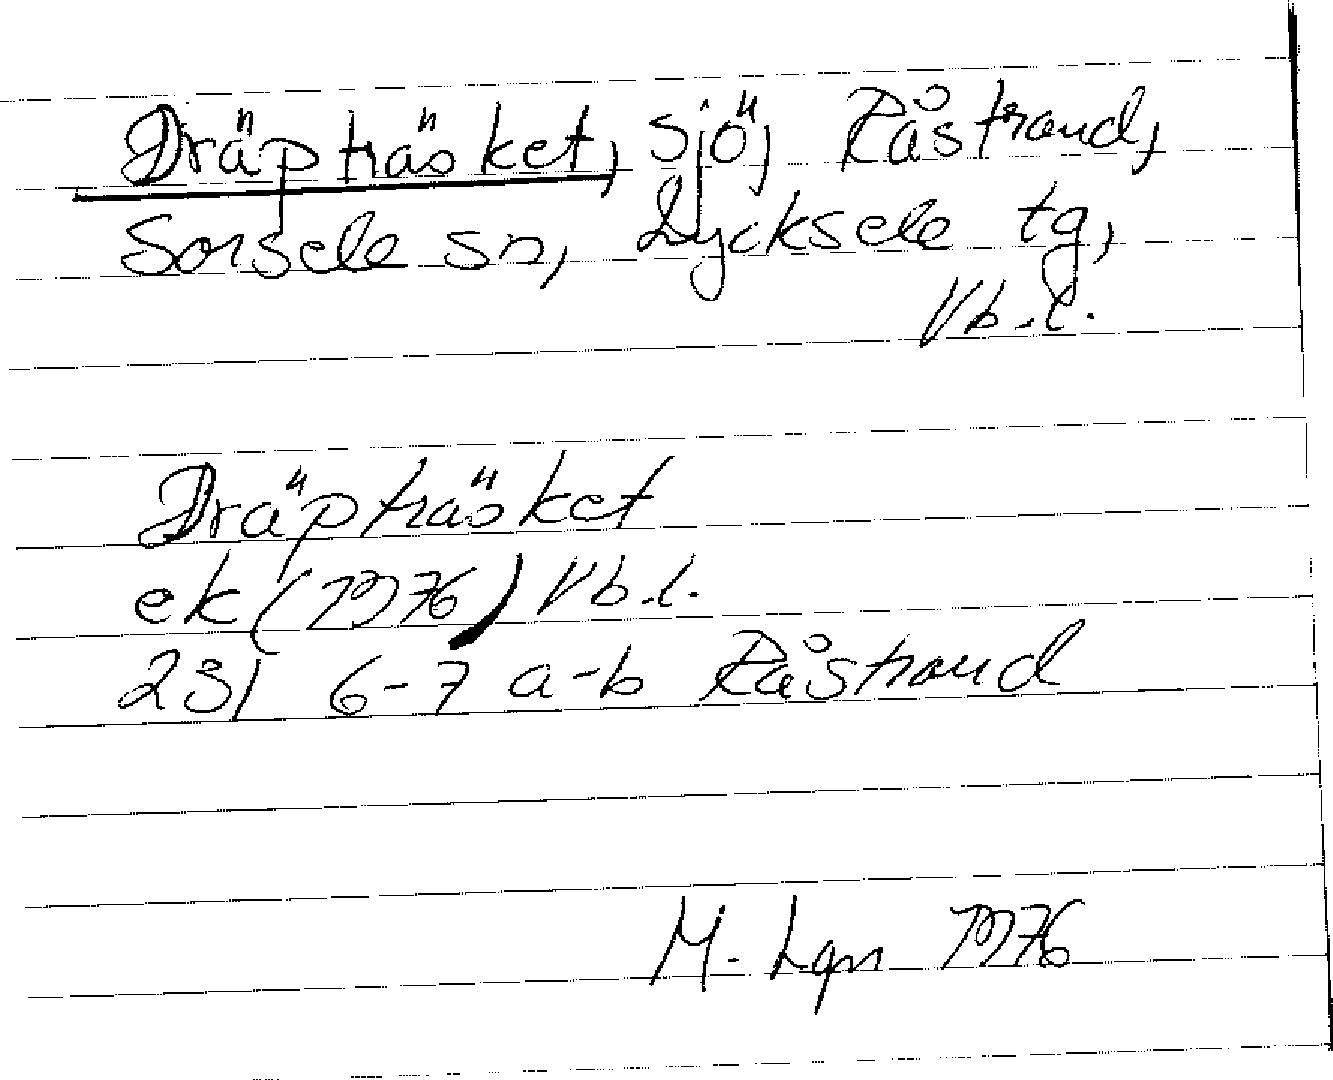 Dräpträsket, sjö, Råstrand,
Sorsele sn, Lycksele tg,
Vb.l.
Dräpträsket
ek (1976) Vb.l.
23I 6-7 a-b Råstrand
M. Lgn 1976